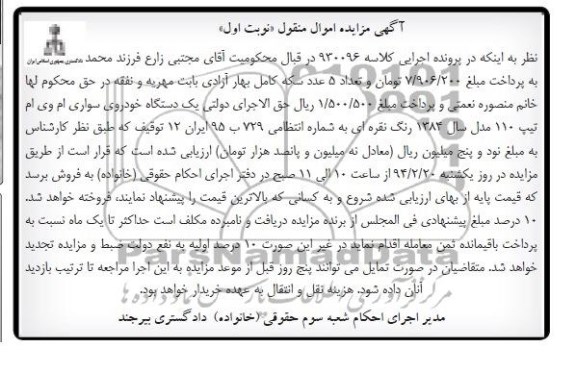 آگهی مزایده اموال منقول «نوبت اول»
دادگستری جمهوری اسلامی ایران
نظر به اینکه در پرونده اجرایی کلاسه ۹۳۰۰۹۶ در قبال محکومیت آقای مجتبی زارع فرزند محمد
به پرداخت مبلغ ۷/۹۰۶/۲۰۰ تومان و تعداد ۵ عدد سکه کامل بهار آزادی بابت مهریه و نفقه در حق محکوم لها
خانم منصوره نعمتی و پرداخت مبلغ ۱/۵۰۰/۵۰۰ ریال حق الاجرای دولتی یک دستگاه خودروی سواری ام وی ام
تیپ ۱۱۰ مدل سال ۱۳۸۴ رنگ نقره ای به شماره انتظامی ۷۲۹ ب ۹۵ ایران ۱۲ توقیف که طبق نظر کارشناس
به مبلغ نود و پنج میلیون ریال (معادل نه میلیون و پانصد هزار تومان) ارزیابی شده است که قرار است از طریق
مزایده در روز یکشنبه ۹۴/۲/۲۰ از ساعت ۱۰ الی ۱۱ صبح در دفتر اجرای احکام حقوقی (خانواده) به فروش برسد
که قیمت پایه از بهای ارزیابی شده شروع و به کسانی که بالاترین قیمت را پیشنهاد نمایند، فروخته خواهد شد.
۱۰ درصد مبلغ پیشنهادی فی المجلس از برنده مزایده دریافت و نامبرده مکلف است حداکثر تا یک ماه نسبت به
پرداخت باقیمانده ثمن معامله اقدام نماید در غیر این صورت ۱۰ درصد اولیه به نفع دولت ضبط و مزایده تجدید
خواهد شد. متقاضیان در صورت تمایل می توانند پنج روز قبل از موعد مزایده به این اجرا مراجعه تا ترتیب بازدید
آنان داده شود. هزینه نقل و انتقال به عهده خریدار خواهد بود.
مدیر اجرای احکام شعبه سوم حقوقی (خانواده) دادگستری بیرجند
ParsNamadData